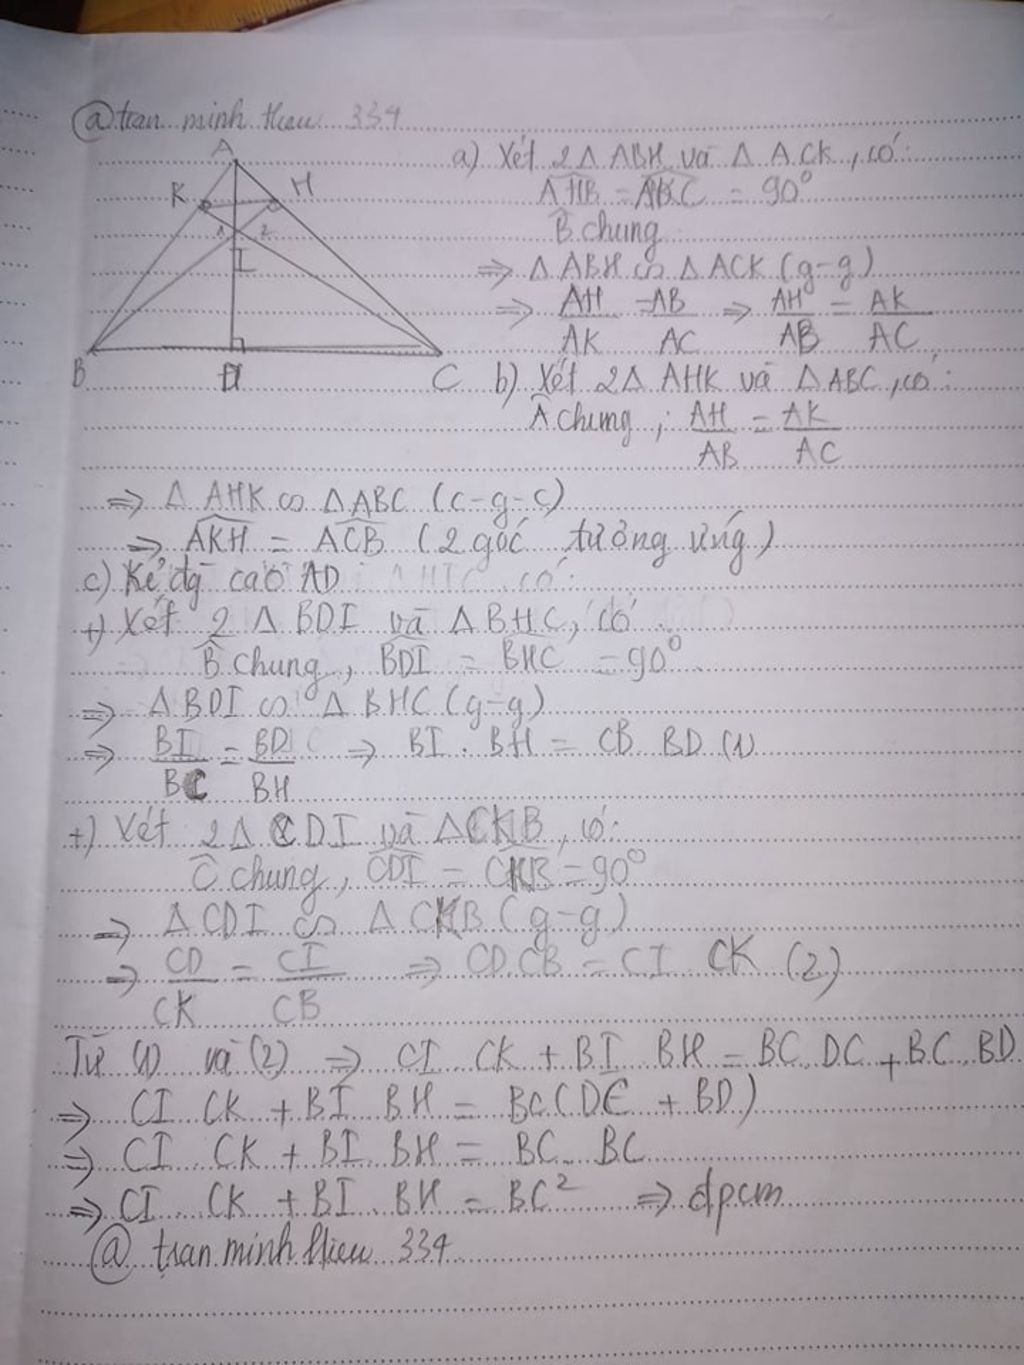 @ tran minh hieu 334
A
K H
1 2
I
B D C
a) Xét 2Δ ABH và Δ ACK, có:
AHB = AKC = 90°
B chung
=> Δ ABH ∽ Δ ACK (g-g)
=> AH/AK = AB/AC => AH/AB = AK/AC
b) Xét 2Δ AHK và Δ ABC, có:
A chung, AH/AB = AK/AC
=> Δ AHK ∽ Δ ABC (c-g-c)
=> AKH = ACB (2 góc tương ứng)
c) Kẻ đg cao AD
+) Xét 2 Δ BDI và Δ BHC, có
B chung, BDI = BHC = 90°
=> Δ BDI ∽ Δ BHC (g-g)
=> BI/BC = BD/BH => BI . BH = CB . BD (1)
+) Xét 2Δ CDI và Δ CKB, có:
C chung, CDI = CKB = 90°
=> Δ CDI ∽ Δ CKB (g-g)
=> CD/CK = CI/CB => CD.CB = CI . CK (2)
Từ (1) và (2) => CI . CK + BI . BH = BC . DC + BC . BD
=> CI . CK + BI . BH = BC(DC + BD)
=> CI . CK + BI . BH = BC . BC
=> CI . CK + BI . BH = BC² => đpcm
@ tran minh hieu 334